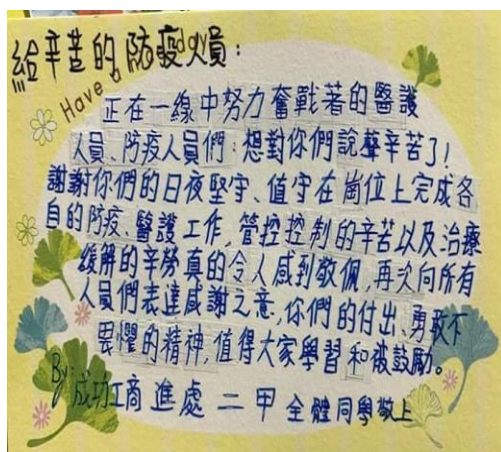 給辛苦的防疫人員:
Have a day
正在一線中努力奮戰著的醫護
人員、防疫人員們:想對你們說聲辛苦了!
謝謝你們的日夜堅守、值守在崗位上完成各
自的防疫、醫護工作,管控控制的辛苦以及治療
緩解的辛勞真的令人感到敬佩,再次向所有
人員們表達感謝之意,你們的付出、勇敢不
畏懼的精神,值得大家學習和被鼓勵。
By:
成功工商進處二甲全體同學敬上